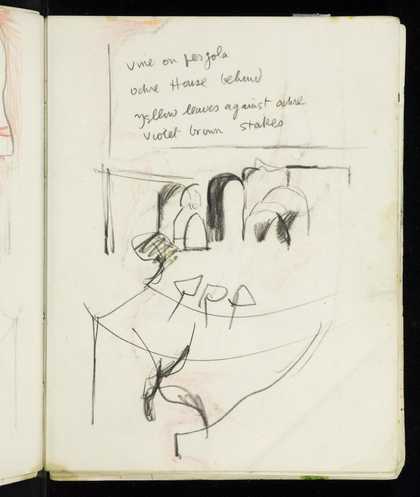 vine on pergola
ochre House behind
yellow leaves against ochre
violet brown stakes